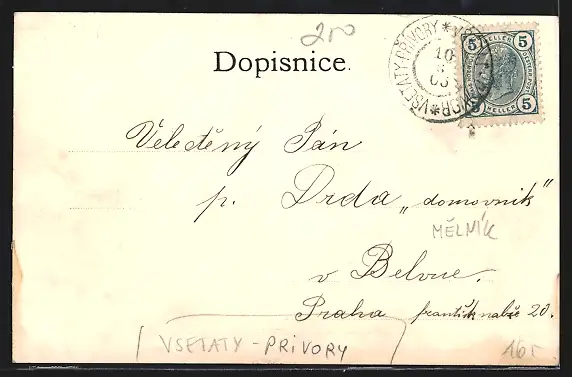 200
Dopisnice.
VŠETATY-PŘÍVORY
10
03
5 HELLER 5
5 HELLER 5
Velectěný Pán
p. Drda „domovník"
MĚLNÍK
v Belvue.
Praha františk nabře 20.
VSETATY - PRIVORY